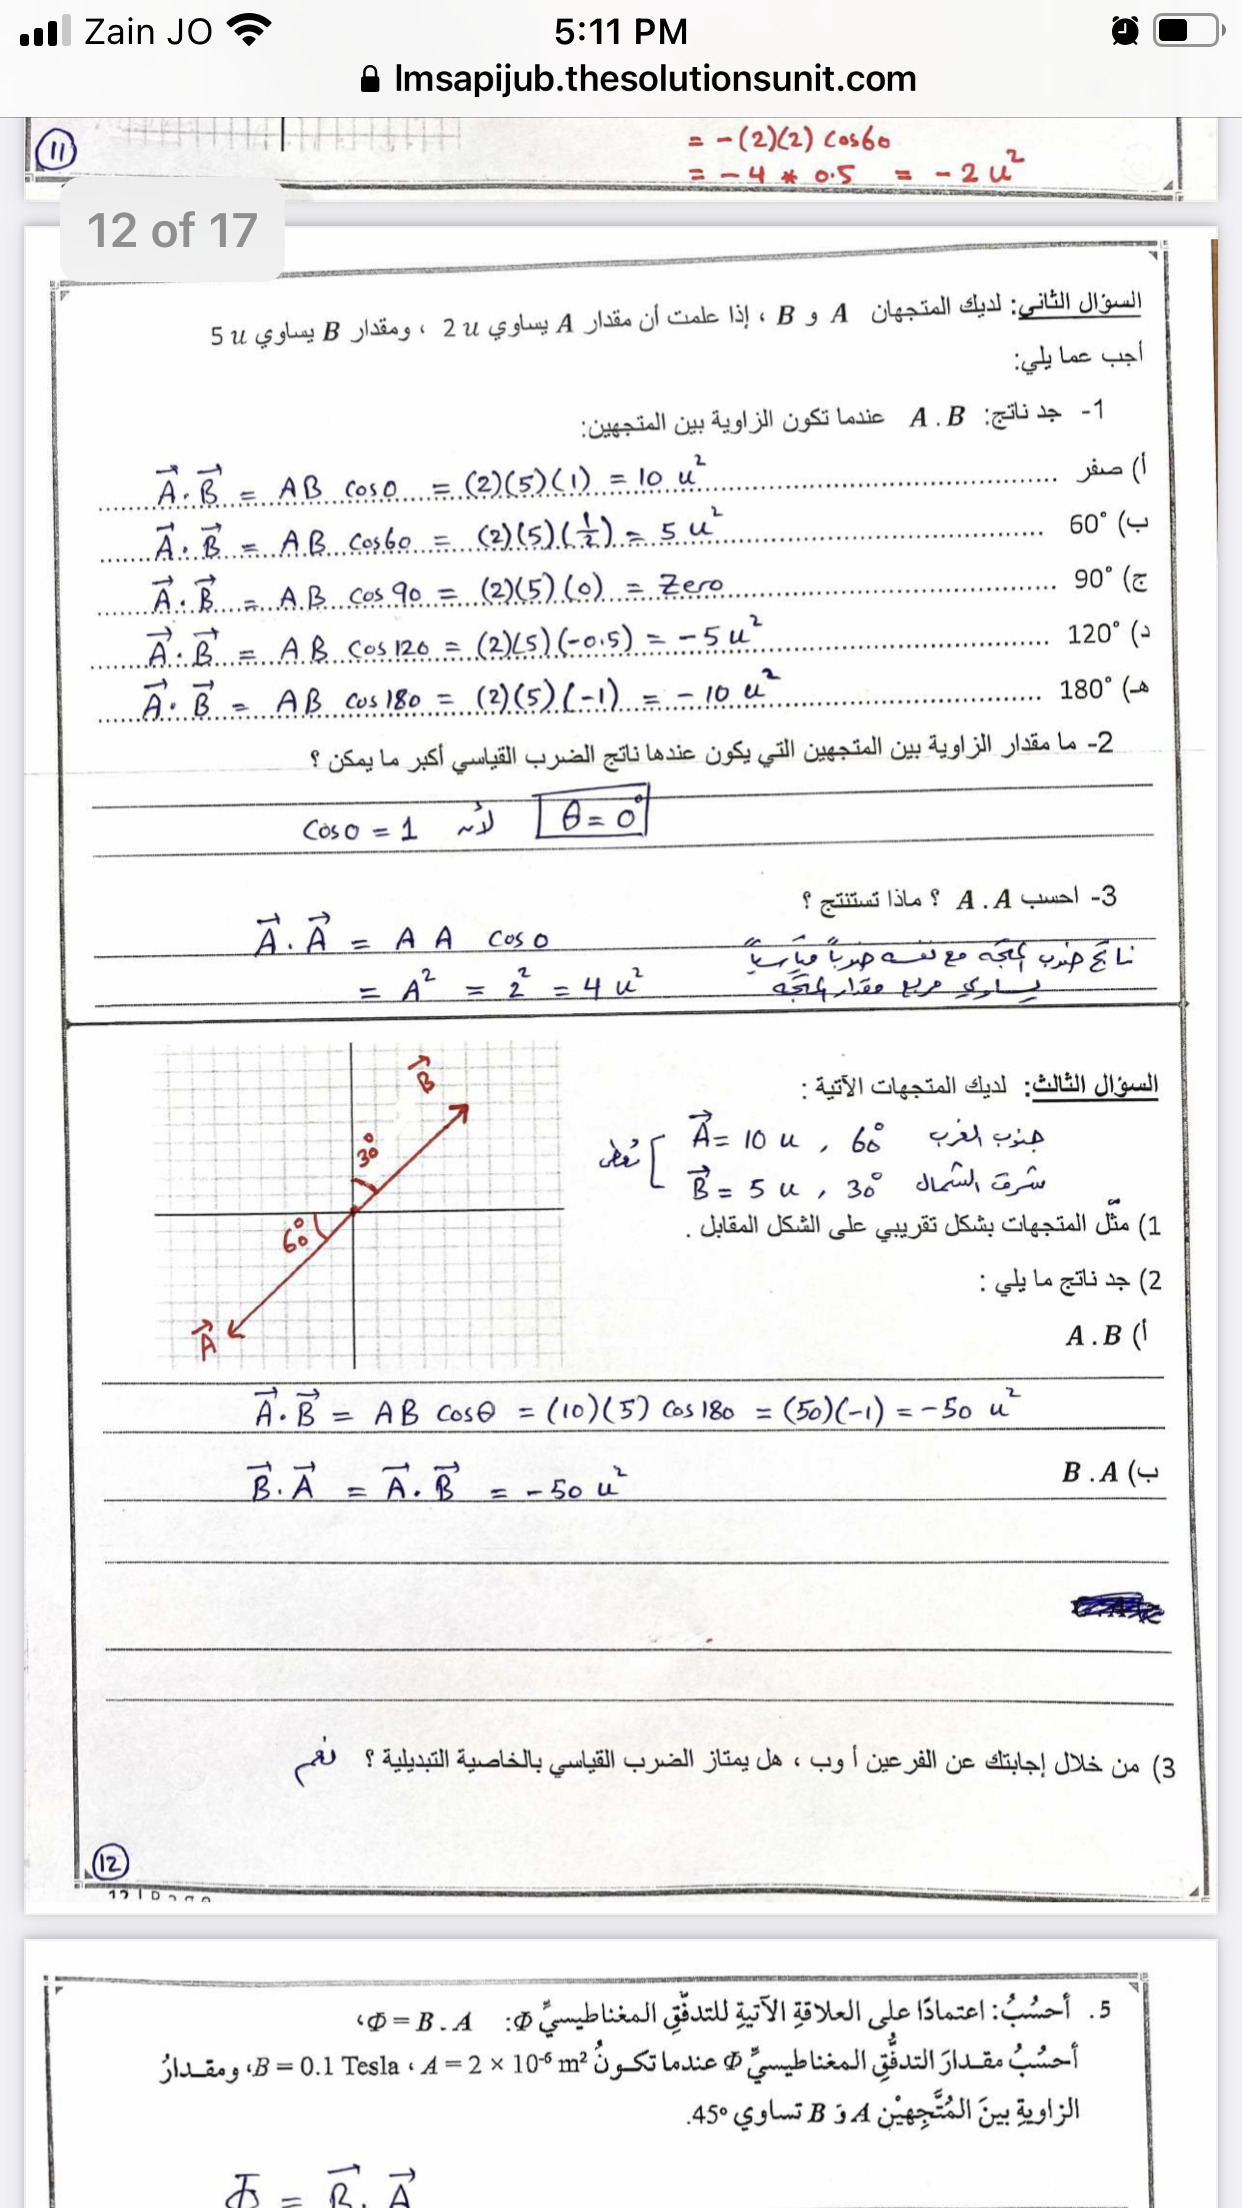 Zain JO 5:11 PM
lmsapijub.thesolutionsunit.com
= -(2)(2) cos60
= -4 * 0.5 = -2 u²
11
12 of 17
السؤال الثاني: لديك المتجهان A و B ، إذا علمت أن مقدار A يساوي 2 u ، ومقدار B يساوي 5 u
أجب عما يلي:
1- جد ناتج: A . B عندما تكون الزاوية بين المتجهين:
أ) صفر A⃗ . B⃗ = AB cos0 = (2)(5)(1) = 10 u²
ب) 60° A⃗ . B⃗ = AB cos60 = (2)(5)(1/2) = 5 u²
ج) 90° A⃗ . B⃗ = AB cos 90 = (2)(5)(0) = Zero
د) 120° A⃗ . B⃗ = AB cos 120 = (2)(5)(-0.5) = -5 u²
هـ) 180° A⃗ . B⃗ = AB cos 180 = (2)(5)(-1) = -10 u²
2- ما مقدار الزاوية بين المتجهين التي يكون عندها ناتج الضرب القياسي أكبر ما يمكن ؟
θ = 0° لأن cos0 = 1
3- احسب A . A ؟ ماذا تستنتج ؟
A⃗ . A⃗ = A A cos 0
ناتج ضرب المتجه مع نفسه ضرباً قياسياً
= A² = 2² = 4 u²
يساوي مربع مقدار المتجه
السؤال الثالث: لديك المتجهات الآتية :
A⃗ = 10 u , 60° جنوب الغرب
B⃗ = 5 u , 30° شرق الشمال
B⃗
30°
60°
A⃗
1) مثّل المتجهات بشكل تقريبي على الشكل المقابل .
2) جد ناتج ما يلي :
أ) A . B
A⃗ . B⃗ = AB cosθ = (10)(5) cos 180 = (50)(-1) = -50 u²
ب) B . A
B⃗ . A⃗ = A⃗ . B⃗ = -50 u²
3) من خلال إجابتك عن الفرعين أ وب ، هل يمتاز الضرب القياسي بالخاصية التبديلية ؟ نعم
12
5. أحسُبُ: اعتمادًا على العلاقةِ الآتيةِ للتدفّقِ المغناطيسيِّ Φ: Φ = B . A،
أحسُبُ مقدارَ التدفُّقِ المغناطيسيِّ Φ عندما تكونُ A = 2 × 10⁻⁶ m² ، B = 0.1 Tesla، ومقدارُ
الزاويةِ بينَ المُتَّجِهيْنِ A وَ B تساوي 45°.
Φ = B⃗ . A⃗